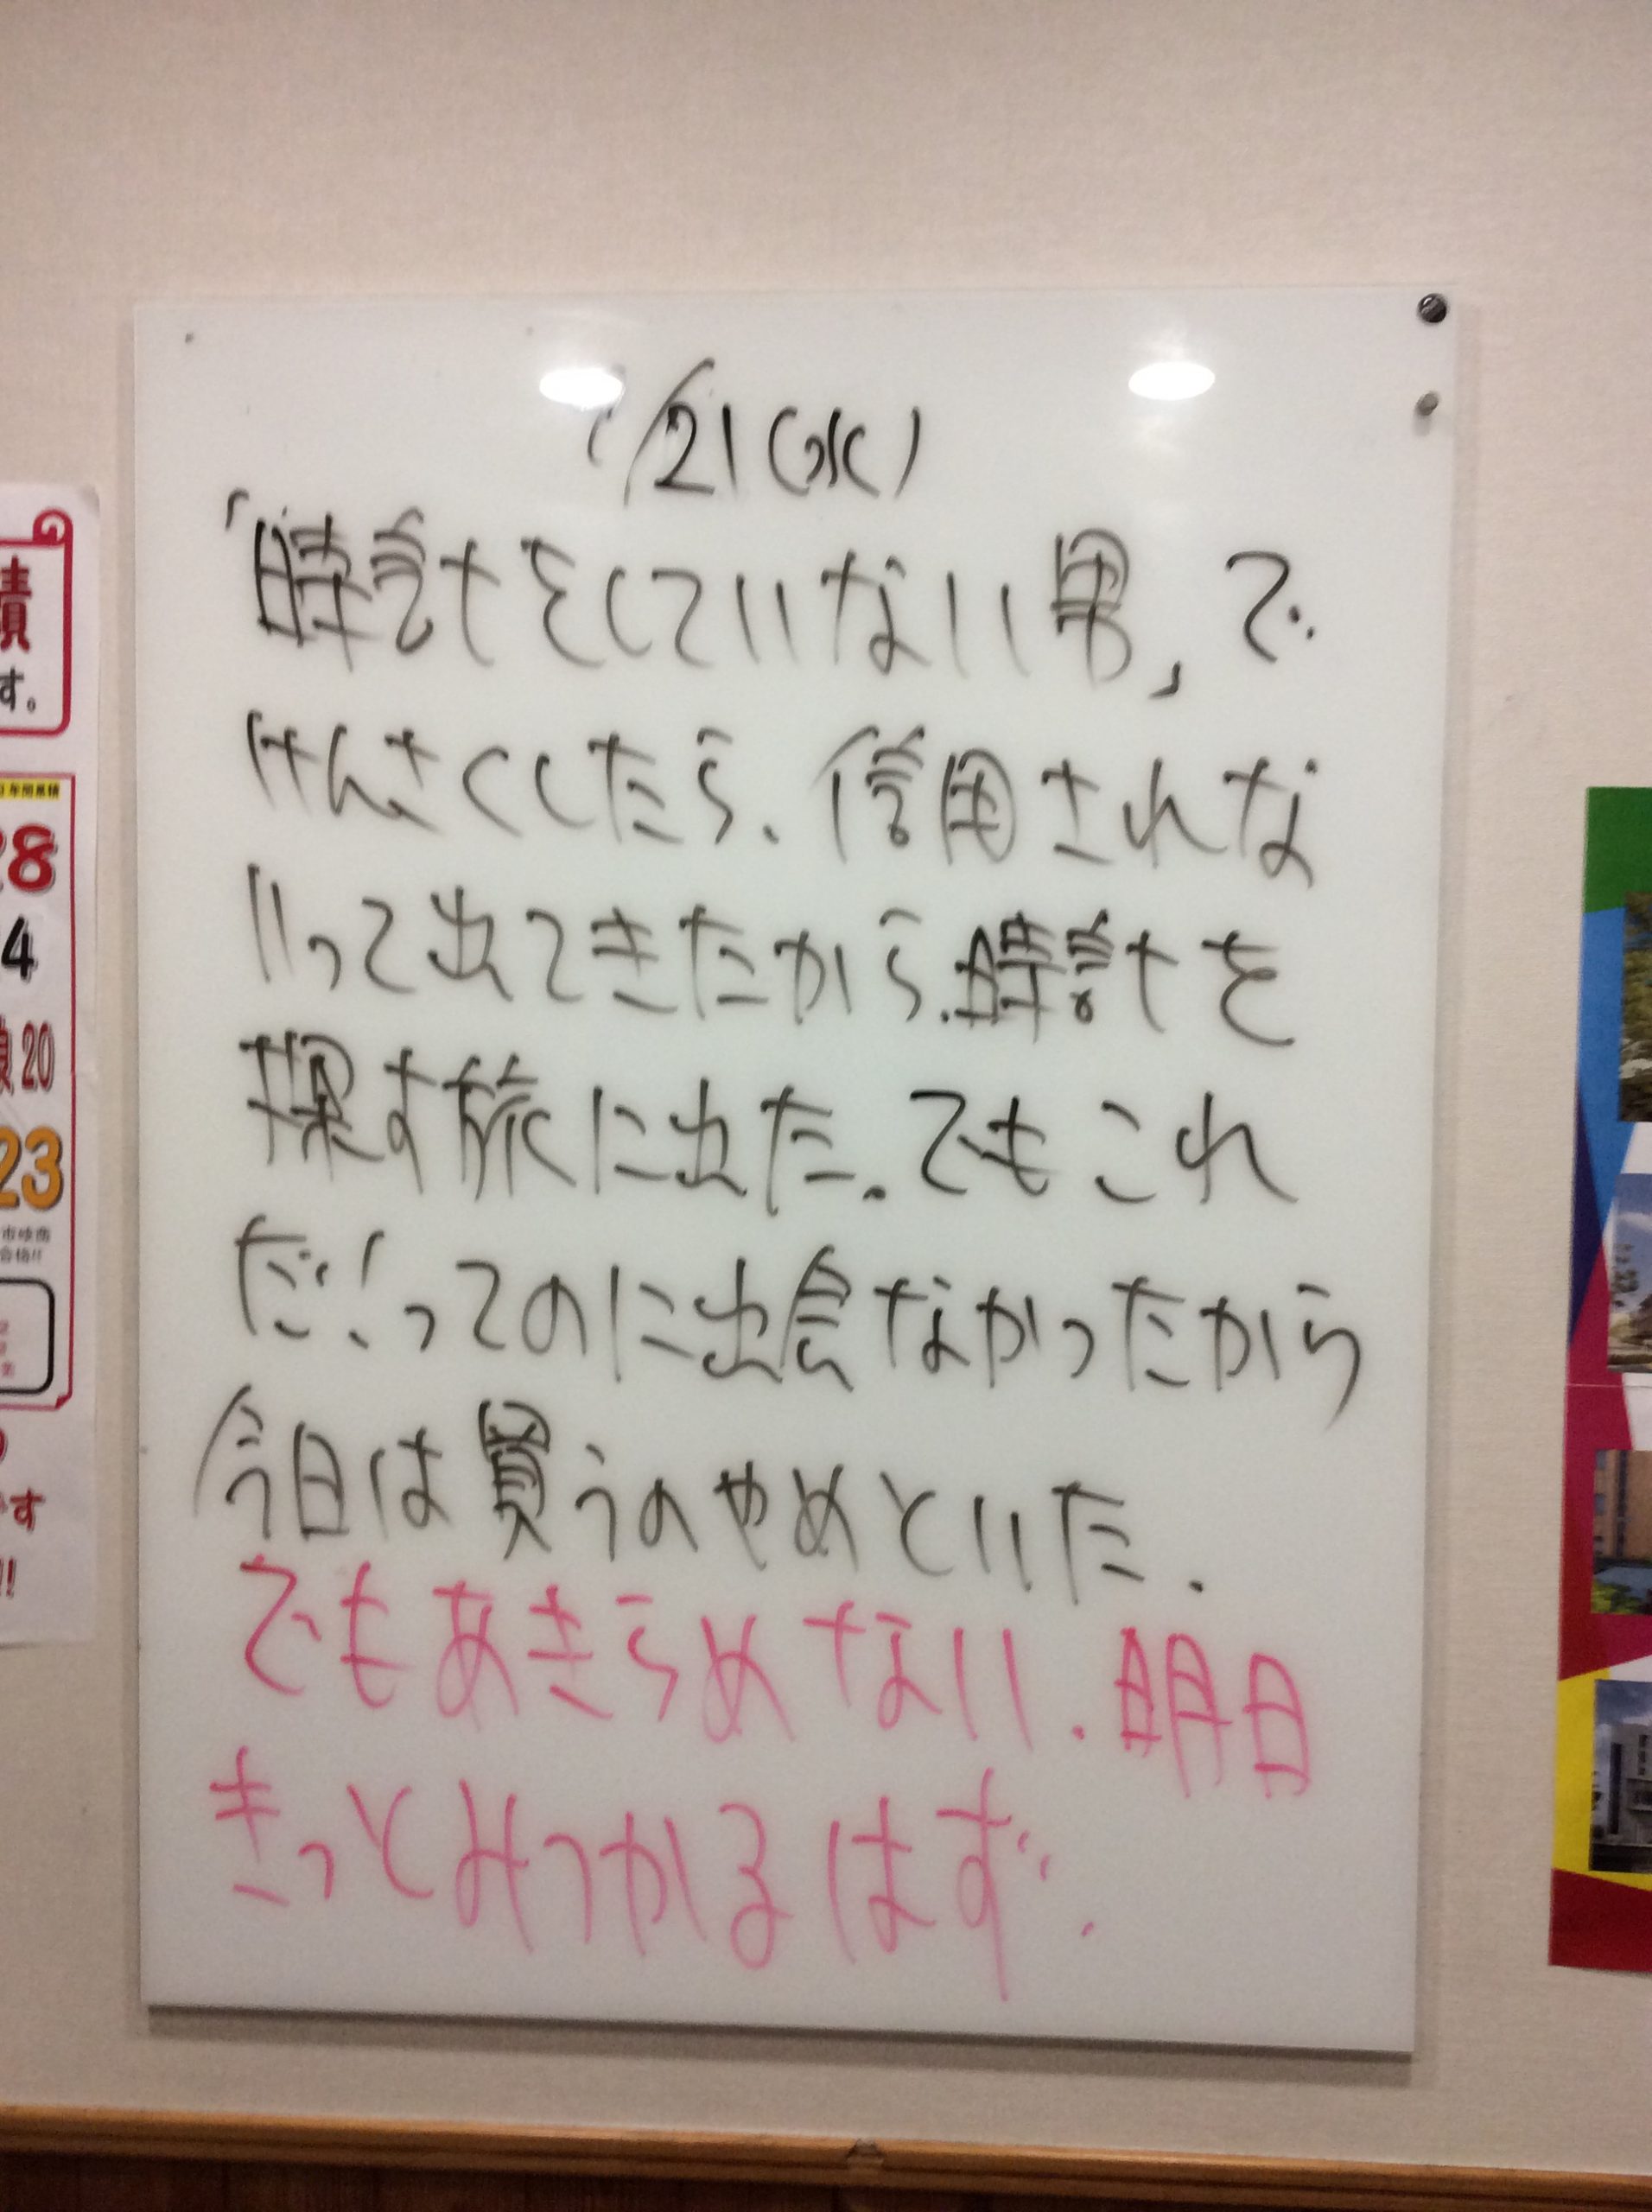 1/21(水)
「時計をしていない男」で
けんさくしたら、信用されな
いって出てきたから、時計を
探す旅に出た。でもこれ
だ!ってのに出会なかったから
今日は買うのやめといた。
でもあきらめない。明日
きっとみつかるはず。
績
す。
28
4
20
23
す
!!